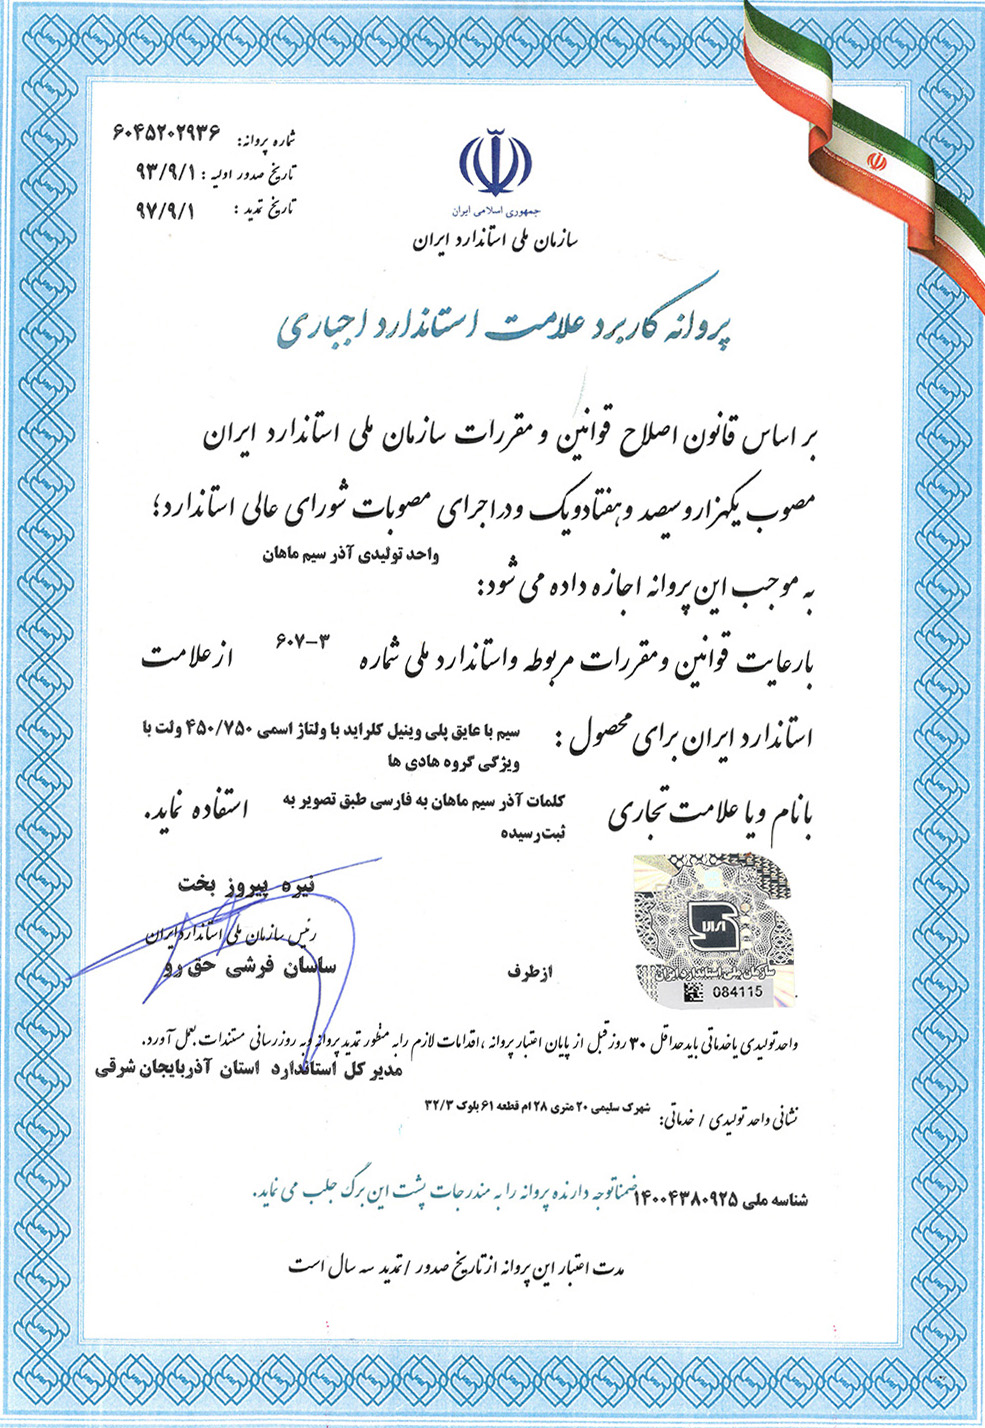 شماره پروانه: ۶۰۴۵۲۰۲۹۳۶
تاریخ صدور اولیه : ۹۳/۹/۱
تاریخ تمدید : ۹۷/۹/۱
جمهوری اسلامی ایران
سازمان ملی استاندارد ایران
پروانه کاربرد علامت استاندارد اجباری
بر اساس قانون اصلاح قوانین و مقررات سازمان ملی استاندارد ایران
مصوب یکهزار و سیصد و هفتاد و یک و در اجرای مصوبات شورای عالی استاندارد؛
به موجب این پروانه اجازه داده می شود: واحد تولیدی آذر سیم ماهان
با رعایت قوانین و مقررات مربوطه و استاندارد ملی شماره ۳–۶۰۷ از علامت
استاندارد ایران برای محصول : سیم با عایق پلی وینیل کلراید با ولتاژ اسمی ۴۵۰/۷۵۰ ولت با
ویژگی گروه هادی ها
با نام و یا علامت تجاری کلمات آذر سیم ماهان به فارسی طبق تصویر به استفاده نماید.
ثبت رسیده
نیره پیروز بخت
رئیس سازمان ملی استاندارد ایران
از طرف ساسان فرشی حق رو
سازمان ملی استاندارد ایران
084115
واحد تولیدی یا خدماتی باید حداقل ۳۰ روز قبل از پایان اعتبار پروانه ، اقدامات لازم را به منظور تمدید پروانه و به روز رسانی مستندات بعمل آورد.
مدیر کل استاندارد استان آذربایجان شرقی
نشانی واحد تولیدی / خدماتی: شهرک سلیمی ۲۰ متری ۲۸ ام قطعه ۶۱ بلوک ۳۲/۳
شناسه ملی ۱۴۰۰۴۳۸۰۹۲۵ ضمنا توجه دارنده پروانه را به مندرجات پشت این برگ جلب می نماید.
مدت اعتبار این پروانه از تاریخ صدور / تمدید سه سال است